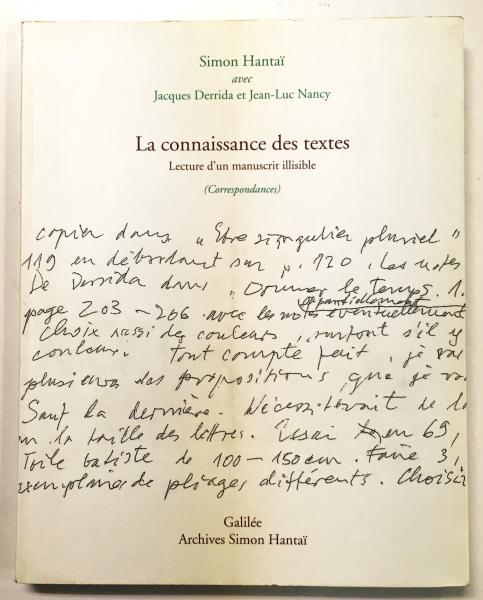 Simon Hantaï
avec
Jacques Derrida et Jean-Luc Nancy
La connaissance des textes
Lecture d'un manuscrit illisible
(Correspondances)
copier dans „Etre singulier pluriel"
119 en débordant sur p. 120. Les notes
De Derrida dans „Donner le temps. 1.
page 203 – 206 avec les notes partiellement eventuellement
Choix aussi des couleurs, surtout s'il y
couleur. Tout compte fait, je
plusieurs des propositions, que je
Sauf la dernière. Nécessiterait de
la taille des lettres. Essai en 69,
Toile batiste de 100 – 150 cm. Faire 3,
exemplaires de pliages différents. Choisir
Galilée
Archives Simon Hantaï